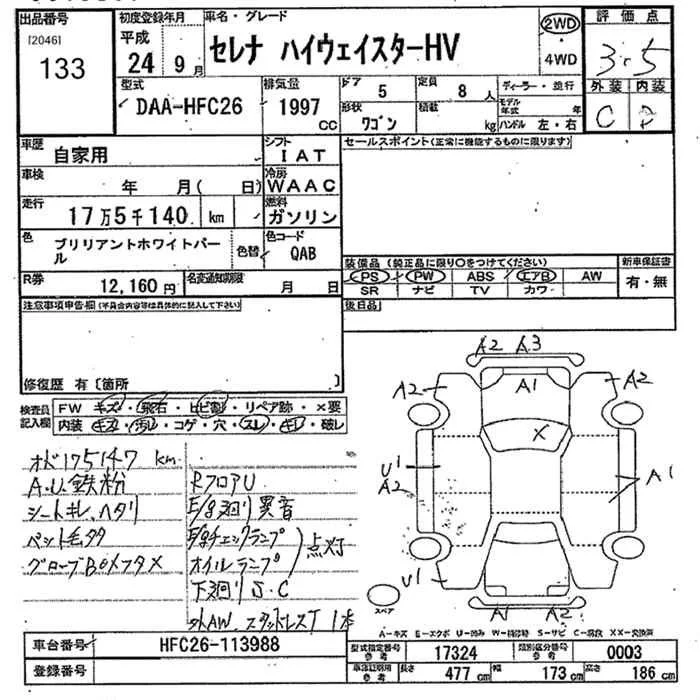 出品番号 初度登録年月 車名・グレード 2WD 評価点
[2046] 平成 セレナ ハイウェイスターHV 3.5
133 24年 9月 4WD 外装 内装
型式 排気量 ドア 5 定員 8人 ディーラー・並行 C D
DAA-HFC26 1997 CC 形状 ワゴン 積載 kg モデル年式 年
ハンドル 左・右
車歴 自家用 シフト IAT セールスポイント(正常に機能するものに限ります)
車検 年 月( 日) 冷房 WAAC
走行 17万5千140 km 燃料 ガソリン
色 ブリリアントホワイトパール 色替 色コード QAB
装備品(純正品に限り○をつけてください) 新車保証書
R券 12,160円 名変通知期限 月 日 PS PW ABS エアB AW 有・無
SR ナビ TV カワ
注意事項申告欄(不具合内容等は具体的に記入して下さい) 後日品
修復歴 有〔箇所 〕
検査員記入欄 FW キズ・飛石・ヒビ割・リペア跡・×要
内装 キズ・汚レ・コゲ・穴・スレ・キレ・破レ
A2 A3
A2 A1 A2
X
U1 A2 A1
U1
A1 A2
スペア
オド175147 km
A.U.鉄粉 Rフロア U
シートキレ、ヘタリ E/g廻り異音
ペット毛 E/gチェックランプ
グローブBOXフタX オイルランプ 点灯
下廻り S.C
外AW、スタッドレスT 1本
A-キズ E-エクボ U-凹み W-補修跡 S-サビ C-腐食 XX-交換済
車台番号 HFC26-113988 型式指定番号参考 17324 類別区分番号参考 0003
登録番号 車庫証明用参考 長さ 477cm 幅 173cm 高さ 186cm